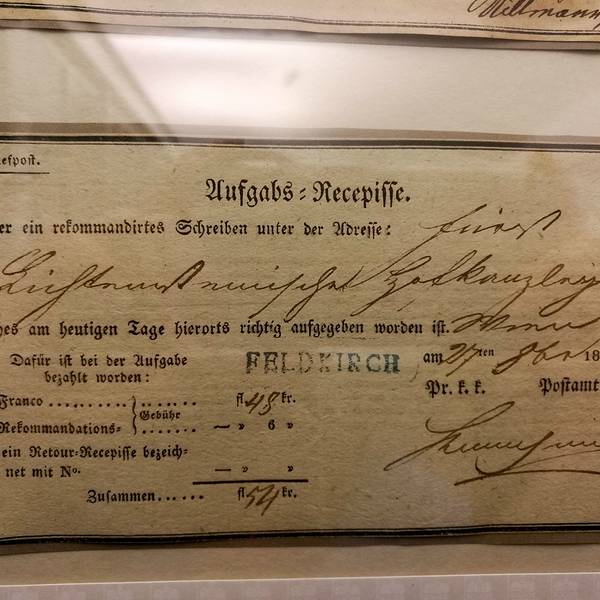 Millmann
efpost.
Aufgabs=Recepisse.
er ein rekommandirtes Schreiben unter der Adresse: fürst
Lichtensteinische Hofkanzley
hes am heutigen Tage hierorts richtig aufgegeben worden ist. Wien
Dafür ist bei der Aufgabe
bezahlt worden:
FELDKIRCH am 27ten 8br 18
Franco ......... } ...... fl. 48 kr.
Gebühr
Pr. k. k. Postamt
Rekommandations- } ...... — " 6 "
ein Retour-Recepisse bezeich-
net mit No. — " "
Zusammen...... fl. 54 kr.